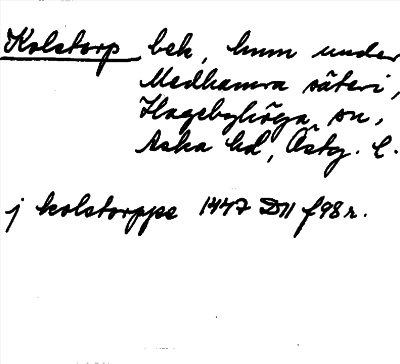 Kolstorp bek, hmn under
Medhamra säteri,
Hagebyhöga sn,
Aska hd, Östg. l.
j kolstorppe 1447 D11 f98r.